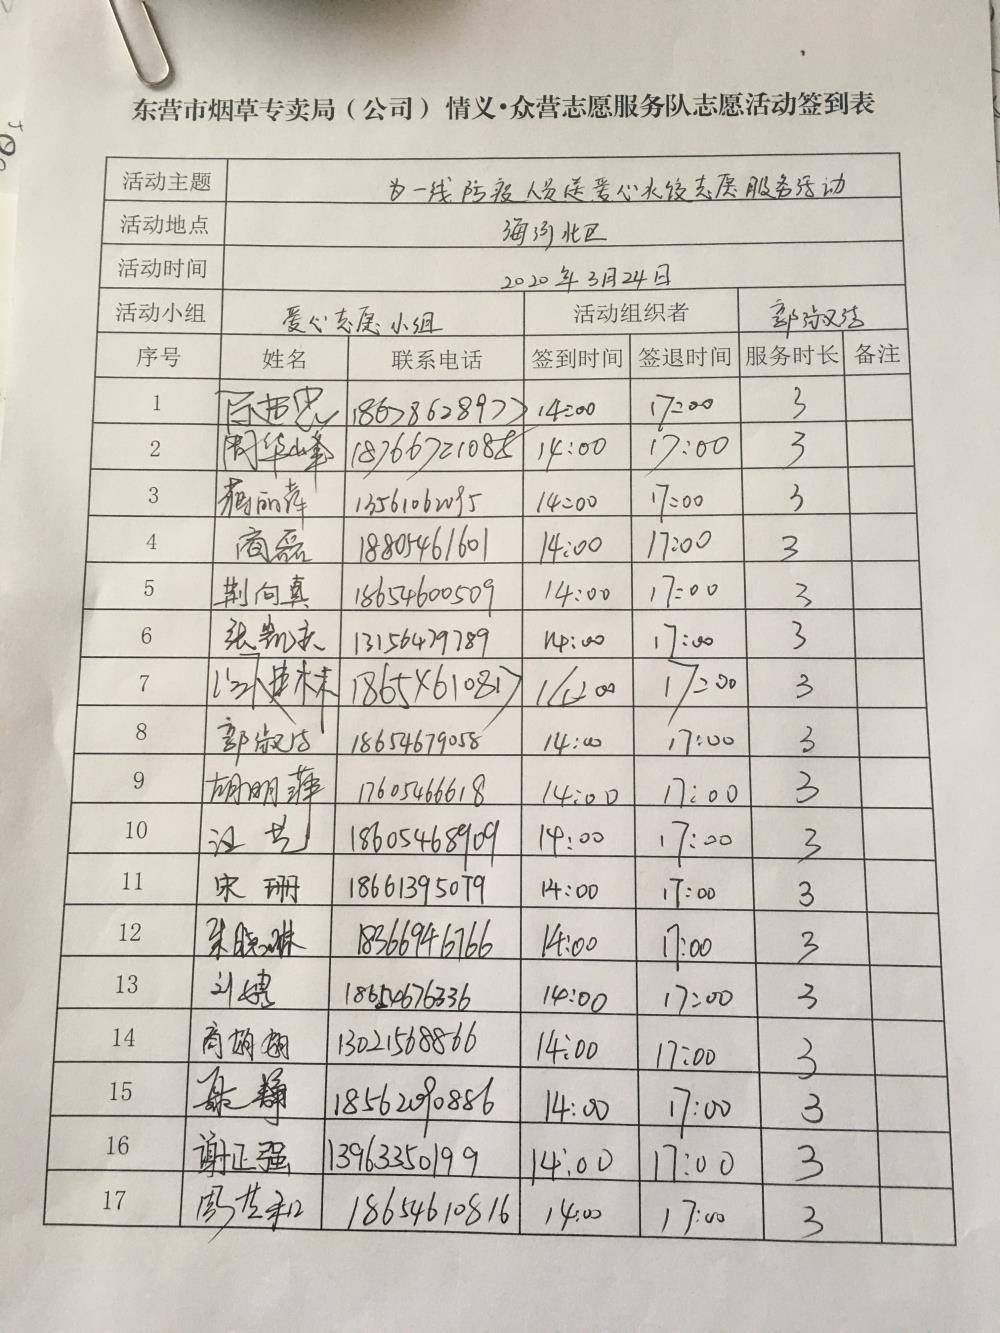 东营市烟草专卖局（公司）情义·众营志愿服务队志愿活动签到表
活动主题 为一线防疫人员送爱心水饺志愿服务活动
活动地点 海河北区
活动时间 2020年3月24日
活动小组 爱心志愿小组 活动组织者 郭淑洁
序号 姓名 联系电话 签到时间 签退时间 服务时长 备注
1 18678628977 14:00 17:00 3
2 周华峰 18766721088 14:00 17:00 3
3 丽萍 13561062095 14:00 17:00 3
4 商磊 18805461601 14:00 17:00 3
5 荆向真 18654600509 14:00 17:00 3
6 张凯 13156479789 14:00 17:00 3
7 18654610817 14:00 17:00 3
8 郭淑洁 18654679058 14:00 17:00 3
9 胡明萍 17605466618 14:00 17:00 3
10 汪艺 18605468909 14:00 17:00 3
11 宋珊 18661395079 14:00 17:00 3
12 朱晓琳 18366946766 14:00 17:00 3
13 刘娉 18654676336 14:00 17:00 3
14 商娟娟 13021568866 14:00 17:00 3
15 聂静 18562090886 14:00 17:00 3
16 谢正强 13963350199 14:00 17:00 3
17 周 18654610816 14:00 17:00 3